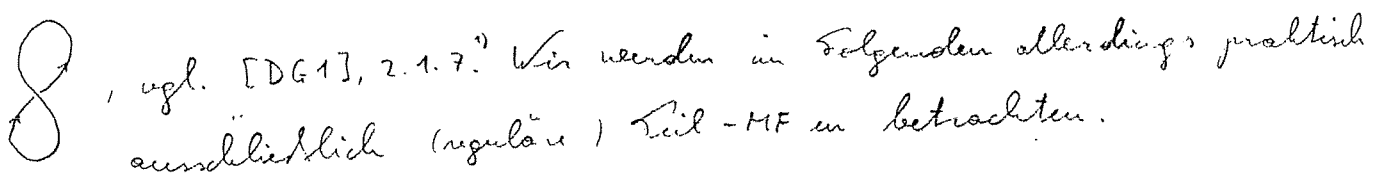 , vgl. [DG1], 2.1.7.¹⁾ Wir werden im Folgenden allerdings praktisch
ausschließlich (reguläre) Teil-MF en betrachten.